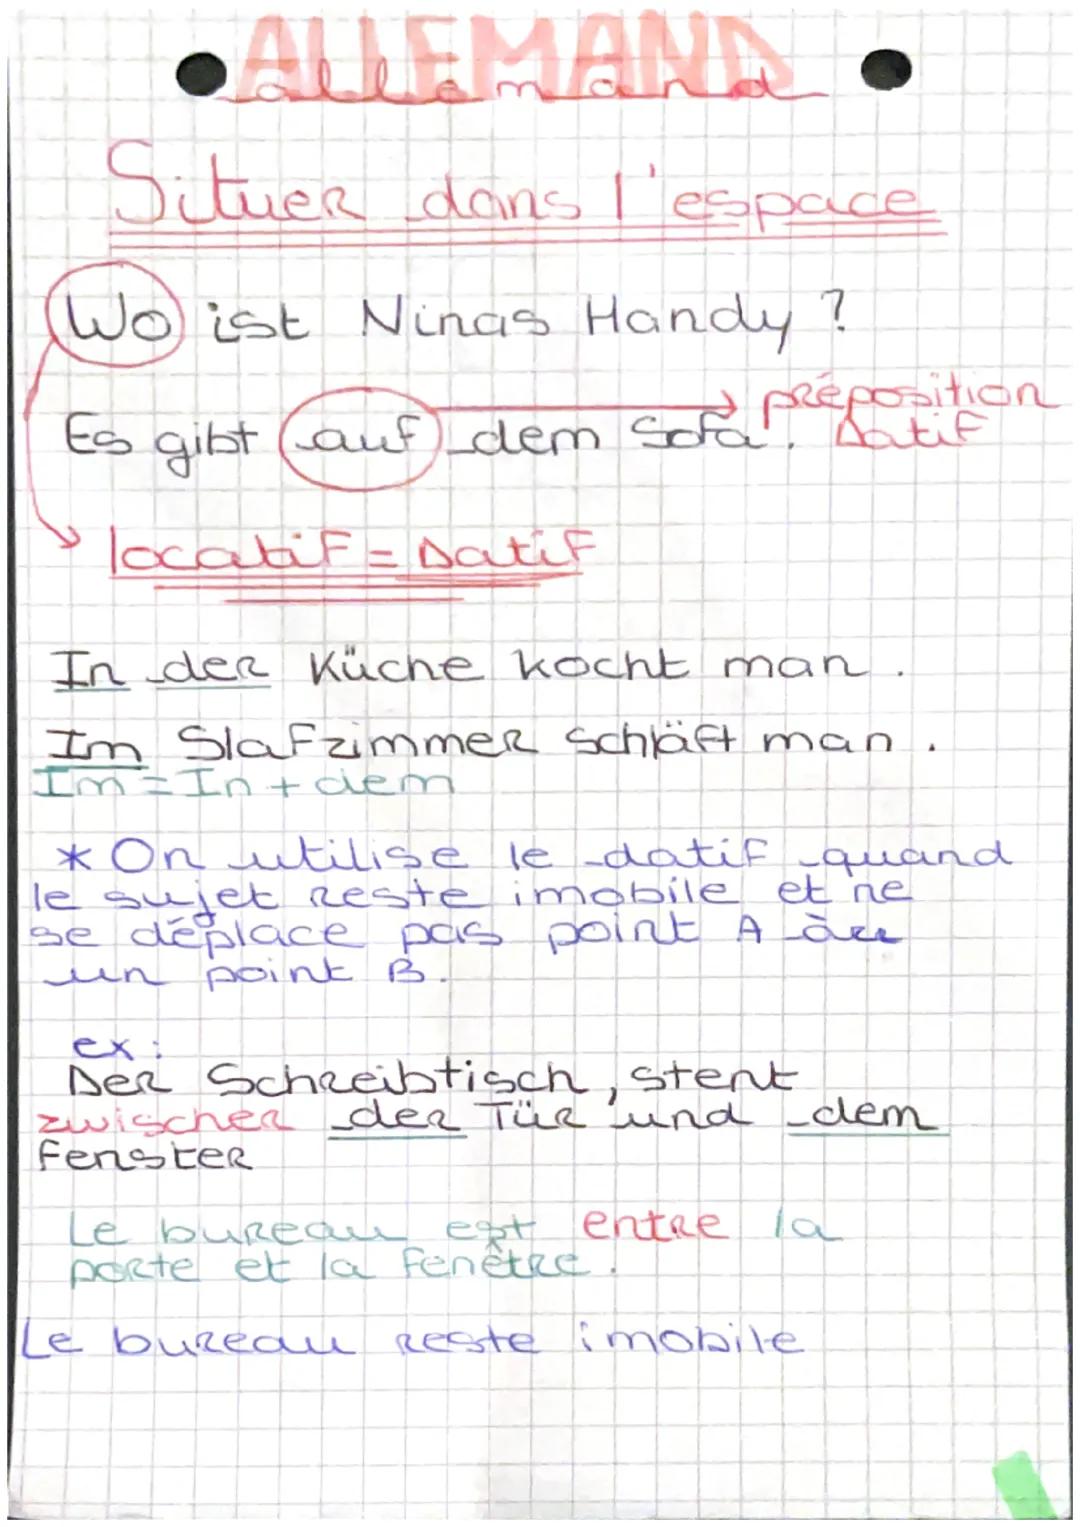 ALLEMAND
allemand
Situer dans l'espace
Wo ist Ninas Handy ?
préposition
Es gibt auf dem Sofa. Datif
locatif = Datif
In der Küche kocht man .
Im Slafzimmer schläft man .
Im = In + dem
* On utilise le datif quand
le sujet reste imobile et ne
se déplace pas point A à
un point B.
ex :
Der Schreibtisch, steht
zwischen der Tür und dem
Fenster
Le bureau est entre la
porte et la fenêtre.
Le bureau reste imobile